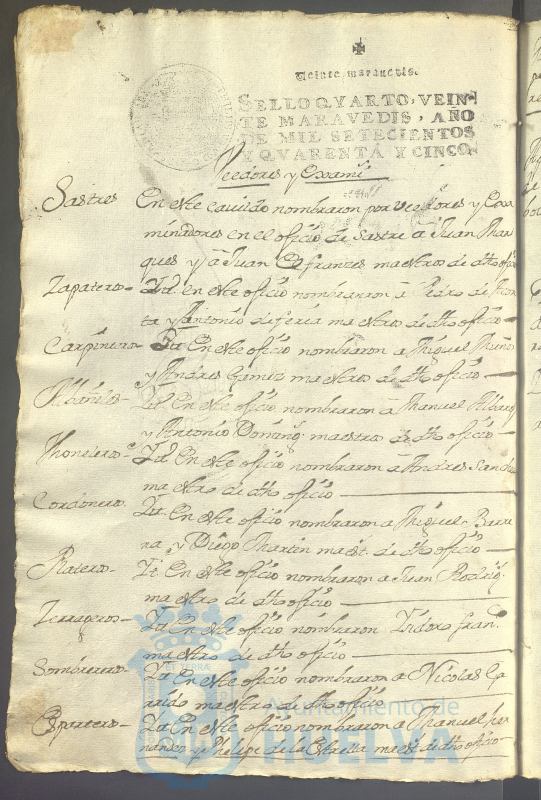 Veinte maravedis.
SELLO QVARTO, VEIN-
TE MARAVEDIS, AÑO
DE MIL SETECIENTOS
Y QVARENTA Y CINCO.
Veedores y Exami.
Sastres En este cauildo nombraron por veedores y Exa
minadores en el oficio de Sastre â Juan Mar
ques y â Juan franzes maestros de dho ofiº
Zapatero Yd. En este oficio nombraron â Pedro de
ta y Antonio de feria maestros de dho oficio
Carpintero Yt. En este oficio nombraron a Miguel Muño
y Andres Gomez maestros de dho oficio
Albañiles Yt. En este oficio nombraron â Manuel Albar
y Antonio Doming. maestros de dho oficio
Yd. En este oficio nombraron â Andres Sanche
maestro de dho oficio
Cordonero Yt. En este oficio nombraron a Miguel Barre
na y Diego Martin maest. de dho oficio
Platero Yt. En este oficio nombraron a Juan Rodrig.
maestro de dho oficio
Zerrageros Yt. En este oficio nombraron Ysidoro fran.
maestro de dho oficio
Sombrerero Yt. En este oficio nombraron a Nicolas Ga
rrido maestro de dho oficio
Espartero Yt. En este oficio nombraron a Manuel fer
nandes y Phelipe de la Estrella maest. de dho oficio
Ayuntamiento de
HUELVA